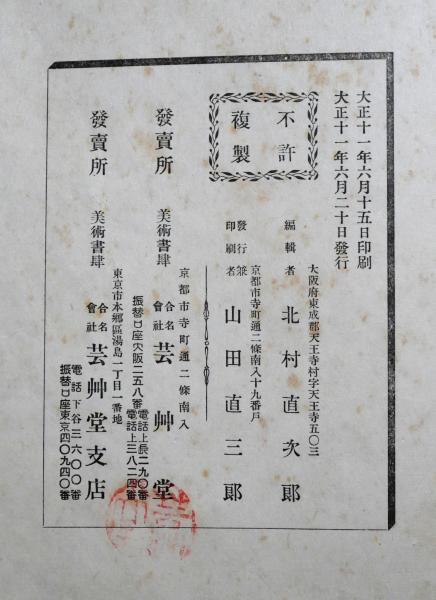 大正十一年六月十五日印刷
大正十一年六月二十日發行
不許
複製
大阪府東成郡天王寺村字天王寺五〇三
編輯者 北村直次郎
京都市寺町通二條南入十九番戸
發行兼印刷者 山田直三郎
京都市寺町通二條南入
發賣所 美術書肆 合名會社 芸艸堂
電話上長二九〇番
電話上三八二四番
振替口座大阪二五八番
東京市本鄕區湯島一丁目一番地
發賣所 美術書肆 合名會社 芸艸堂支店
電話下谷三六〇〇番
振替口座東京四〇九四〇番